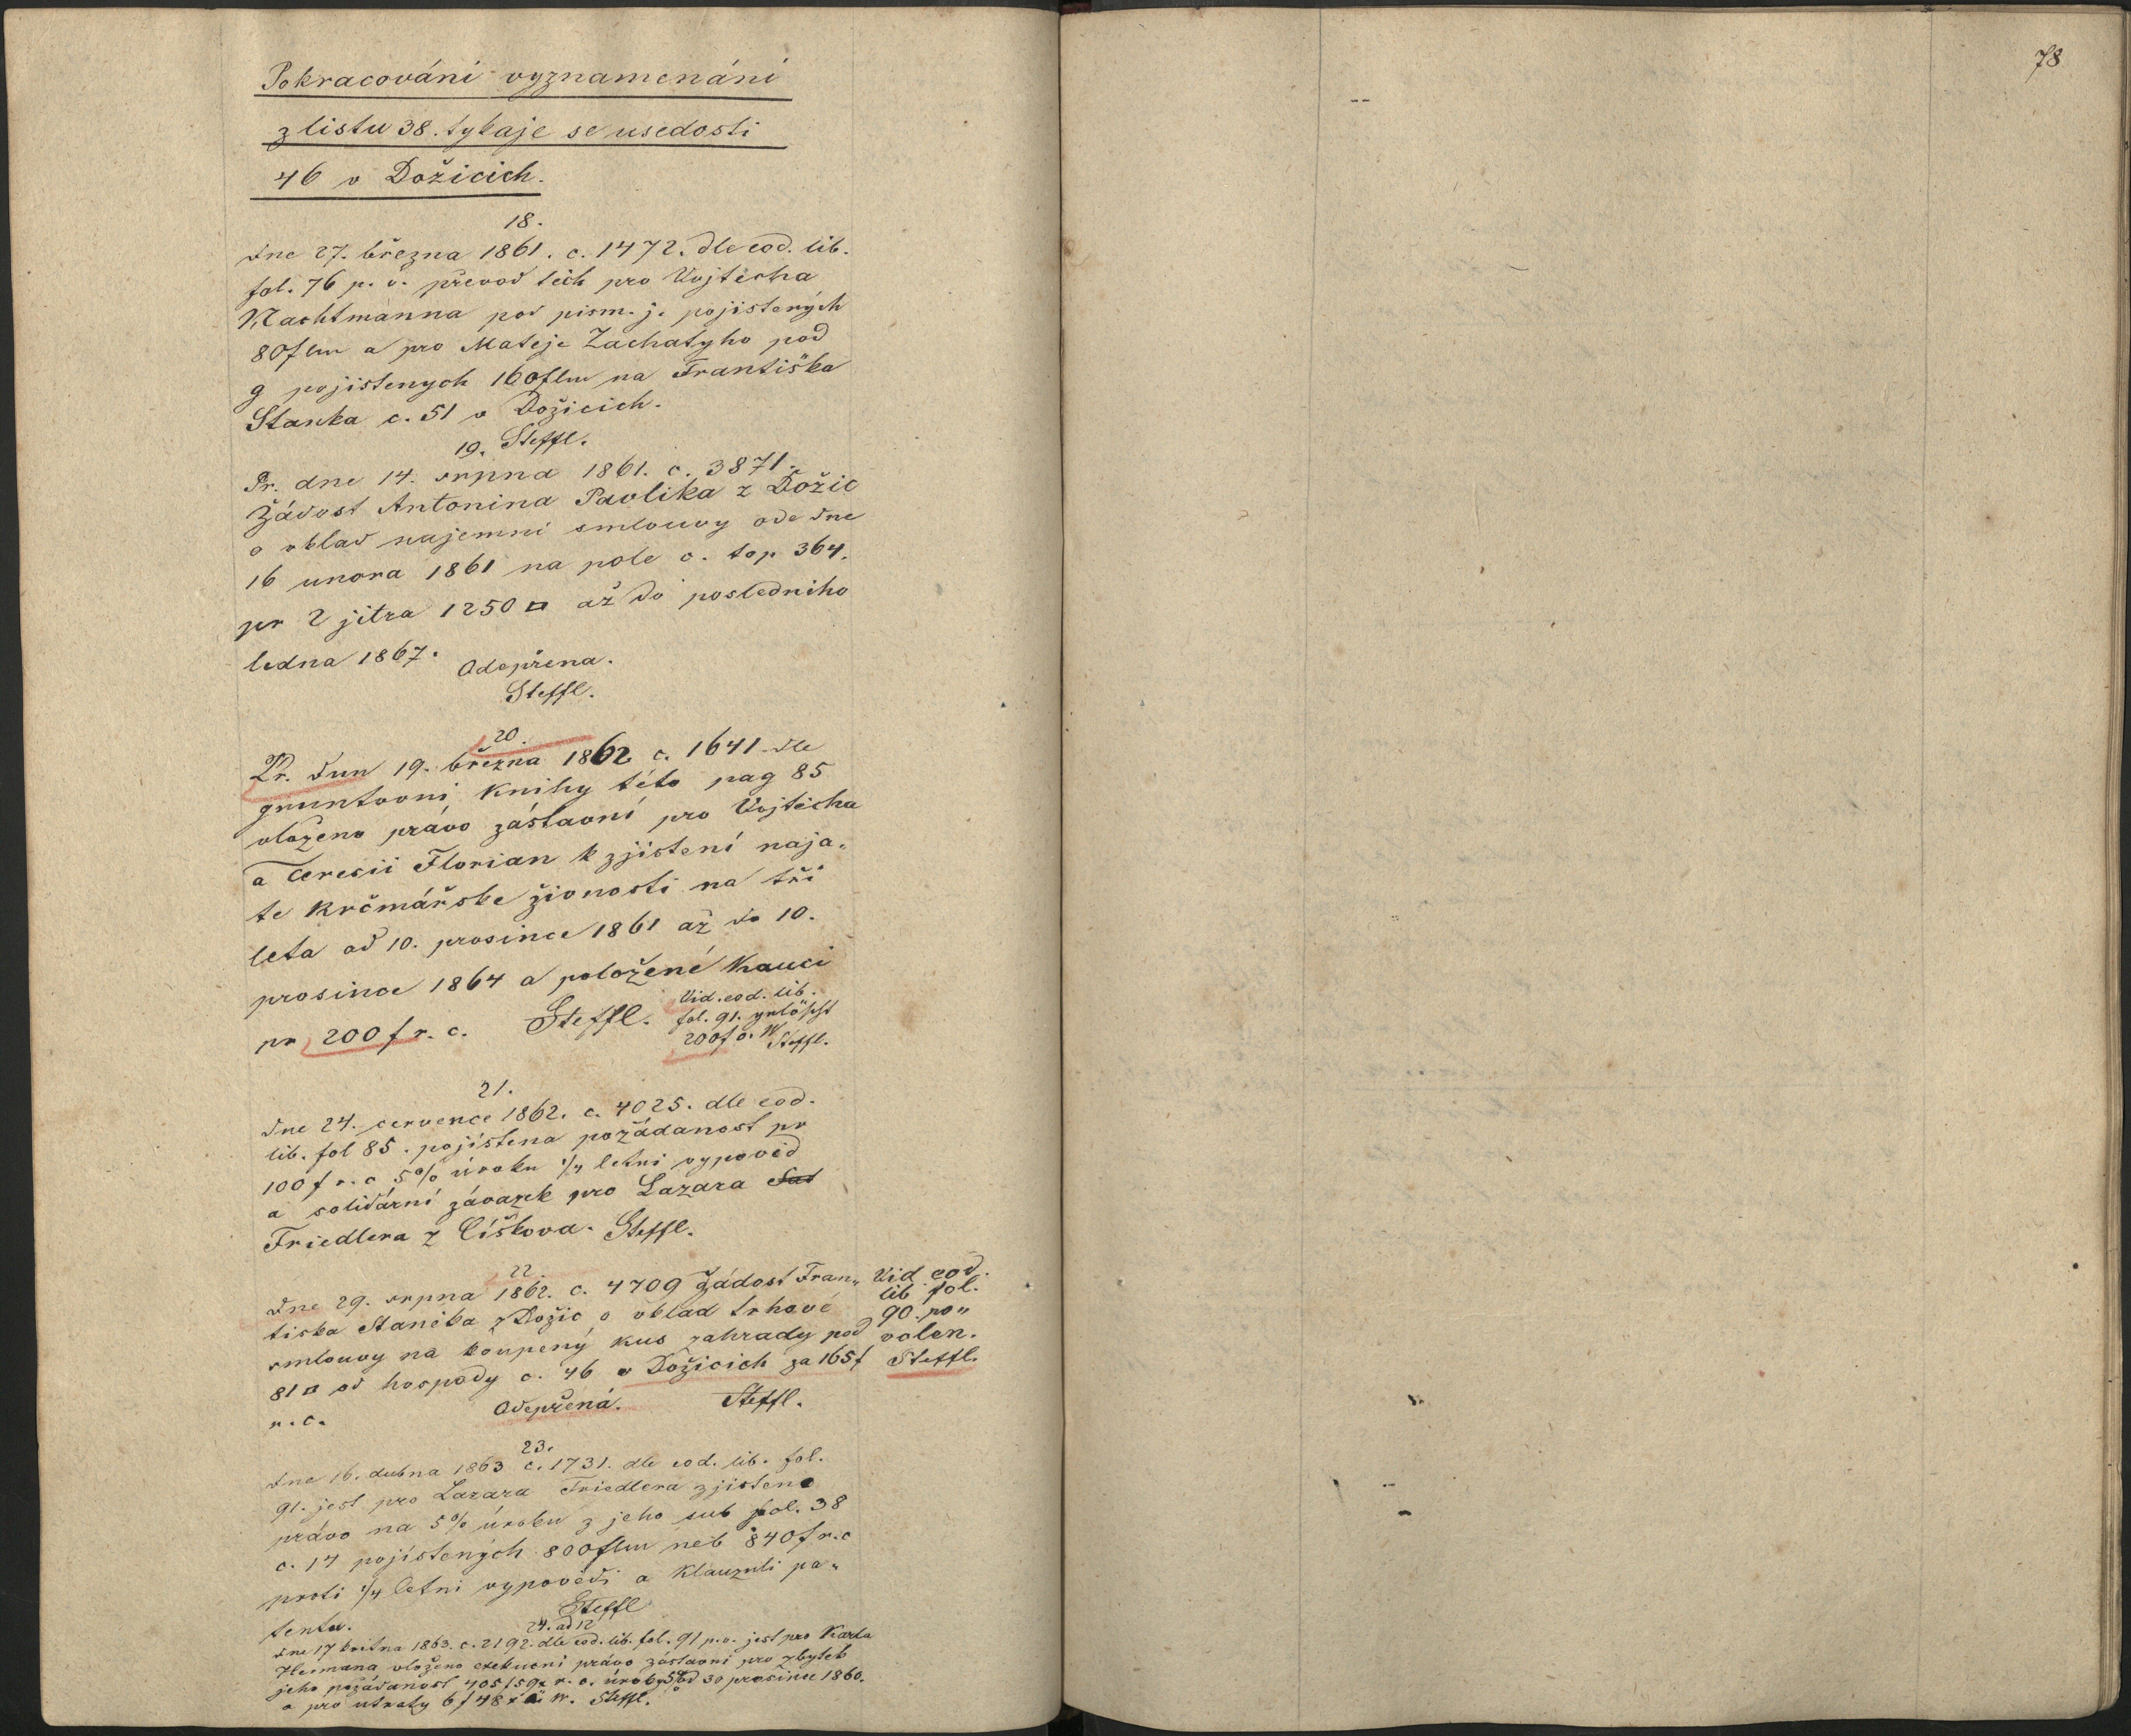 Pokracování vyznamenáni
z listu 38. tykaje se usedosti
46 v Dožicich.
18.
dne 27. března 1861. c. 1472. dle eod. lib.
fol. 76 p. v. převod těch pro Vojtěcha
Nachtmanna pod pism. j. pojistených
80 flm a pro Mateje Zachatyho pod
g pojistenych 160 flm na Františka
Stanka c. 51 v Dožicich.
Steffl.
19.
Pr. dne 14. srpna 1861. c. 3871.
Žádost Antonina Pavlika z Dožic
o vklad najemni smlouvy ode dne
16 unora 1861 na pole c. top 364.
pr 2 jitra 1250 □ až do posledniho
ledna 1867.
Odepřena.
Steffl.
20.
Pr. dnn 19. března 1862 c. 1641 dle
gruntovni knihy této pag 85
vloženo právo zástavní pro Vojtěcha
a Teresii Florian k zjistení naja„
te krčmářske živnosti na tři
leta od 10. prosince 1861 až do 10.
prosince 1864 a položené Kauci
pr 200 f r. c. Steffl.
Vid. eod. lib.
fol. 91. gelöscht
200 f ö. W
Steffl.
21.
dne 24. cervence 1862. c. 4025. dle eod.
lib. fol 85. pojístena požádanost pr
100 f r. c 5% úroku 1/4 letni vypověd
a solidární závazek pro Lazara
Friedlera z Číškova. Steffl.
22.
dne 29. srpna 1862. c. 4709 Žádost Fran„
tiska Staněka z Dožic o vklad trhové
smlouvy na koupený kus zahrady pod
81 □ od hospody c. 46 v Dožicich za 165 f
r. c. Odepřená. Steffl.
Vid eod.
lib fol.
90. po„
volen.
Steffl.
23.
dne 16. dubna 1863 c. 1731. dle eod. lib. fol.
91. jest pro Lazara Friedlera zjisteno
právo na 5% úroku z jeho sub fol. 38
c. 14 pojístených 800 flm neb 840 f r. c
proti 1/4 letni vypovědi a Klauzuli pa„
tentu. Steffl
24. ad 12
dne 17 května 1863. c. 2192. dle eod. lib. fol. 91 p. v. jest pro Karla
Hermana vloženo exekucni právo zástavní pro zbytek
jeho požádanost 405 f 59 x r. c. úroky 5% od 30 prosince 1860.
a pro utraty 6 f 48 x ö W. Steffl.
78